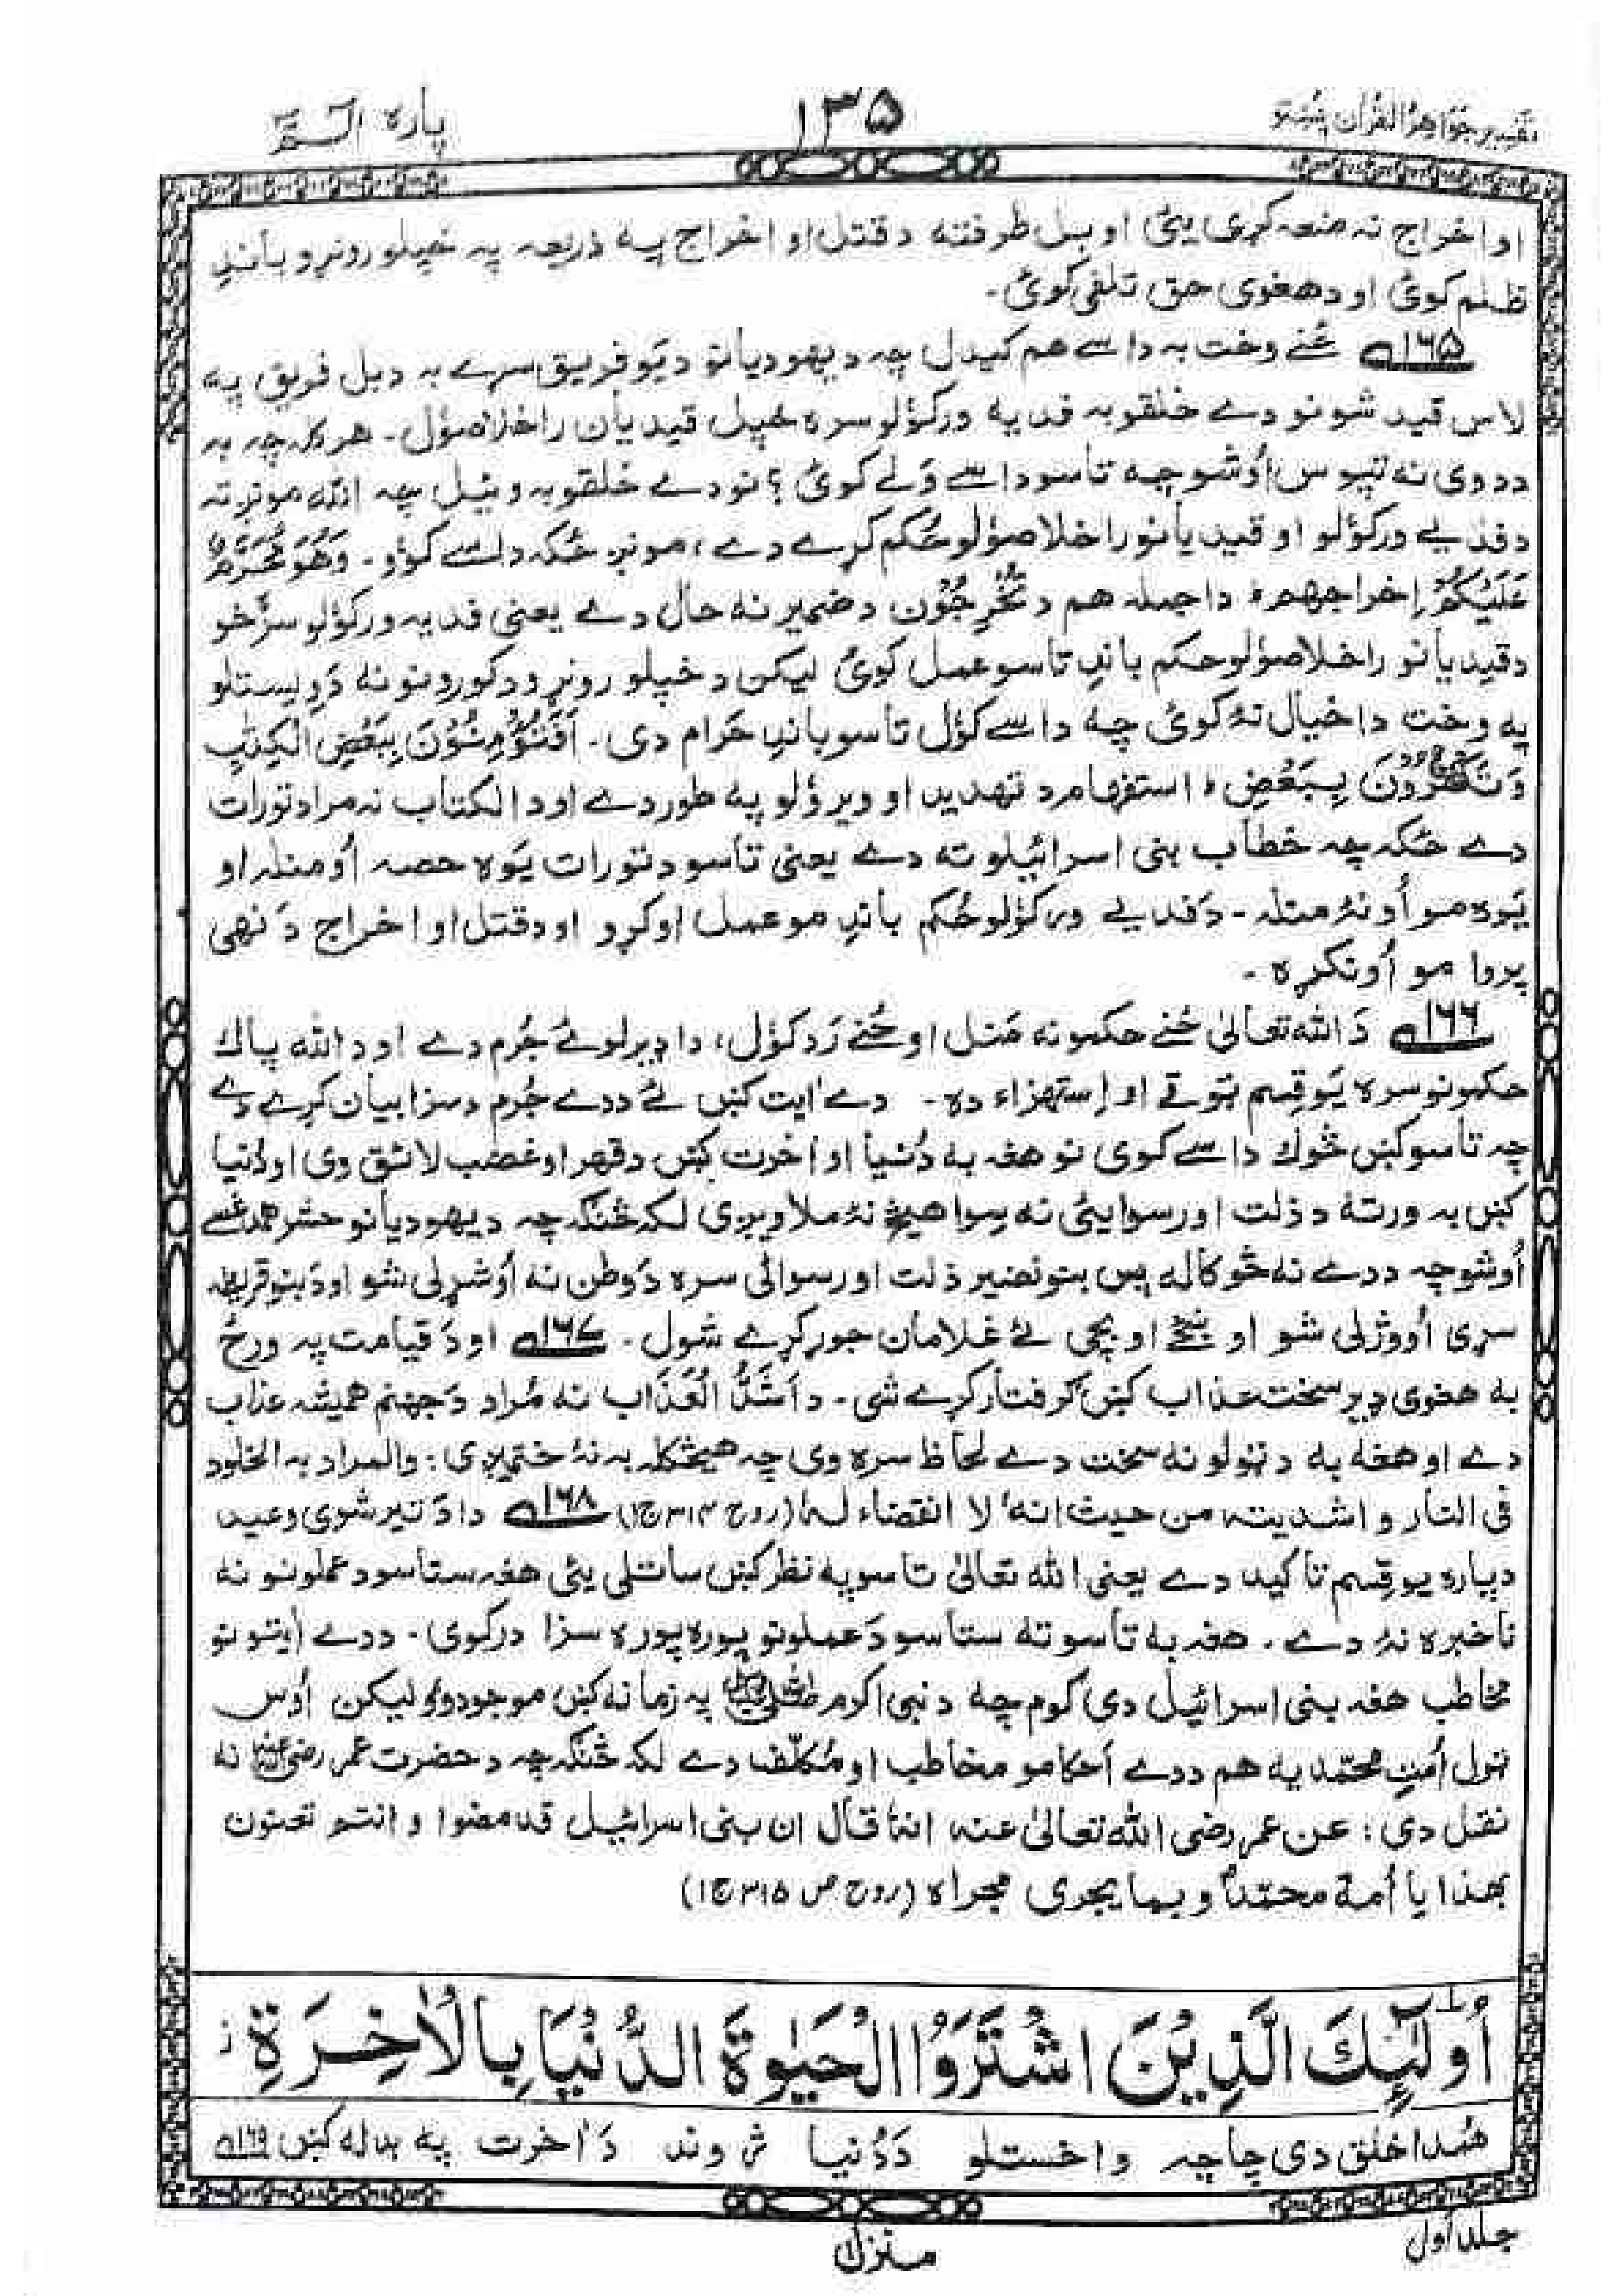 تفسیر جواهر القران پښتو
۱۳۵
پاره الـمّ
او اخراج نه منعه کړی یئی او بل طرفته د قتل او اخراج په ذریعه په خپلو رونړو باندِ
ظلم کوئ او د هغوی حق تلفی کوئ۔
۱۶۵ ځنے وخت به داسے هم کیدل چه د یهودیانو د یَو فریق سرے به د بل فریق په
لاس قید شو نو دے خلقو به فدیه ورکؤلو سره خپل قیدیان راخلاصؤل۔ هر کله چه به
د دوی نه تپوس اُوشو چه تاسو داسے وَلے کوئ؟ نو دے خلقو به وئیل چه الله مونږ ته
د فدیے ورکؤلو او قیدیانو راخلاصؤلو حُکم کړے دے، مونږ ځکه داسے کوؤ۔ وَهُوَ مُحَرَّمٌ
عَلَيْكُمْ إخراجهم ، دا جمله هم د تُخْرِجُوْن د ضمیر نه حال دے یعنی فدیه ورکؤلو سرَه خو
د قیدیانو راخلاصؤلو حکم باندِ تاسو عمل کوئ لیکن د خپلو رونړو د کورونو نه دَ ویستلو
په وخت دا خیال نهٔ کوئ چه داسے کؤل تاسو باندِ حَرام دی۔ اَفَتُؤْمِنُوْنَ بِبَعْضِ الْكِتٰبِ
وَتَكْفُرُوْنَ بِبَعْضٍ ، استفهام د تهدید او ویرؤلو په طور دے او د الکتاب نه مراد تورات
دے ځکه چه خطاب بنی اسرائیلو ته دے یعنی تاسو د تورات یَوه حصه اُومنله او
یَوه مو اُونهٔ منله۔ دَ فدیے ورکؤلو حُکم باندِ مو عمل اوکړو او د قتل او اخراج دَ نهی
پروا مو اُونکړه۔
۱۶۶ دَ الله تعالیٰ ځنے حکمونه مَنل او ځنے رَد کؤل، دا ډیر لوئے جُرم دے او د الله پاك
حکمونو سره یَو قِسم ټوقے او اِستهزاء ده۔ دے اٰیت کښ ئے د دے جُرم سزا بیان کړے ده
چه تاسو کښ څوك داسے کوی نو هغه به دُنیا او اٰخرت کښ د قهر او غضب لائق وی او دُنیا
کښ به ورتهٔ د ذلت او رسوایئی نه سِوا هیڅ نهٔ ملاویږی لکه څنګه چه د یهودیانو حشر هم دغسے
اُوشو چه د دے نه څو کاله پس بنو نضیر ذلت او رسوائی سره دَ وطن نه اُوشړلی شو او دَ بنو قریظه
سړی اُووژلی شو او ښځے او بچی ئے غلامان جوړ کړے شول۔ ۱۶۷ او دَ قیامت په ورځ
به هغوی ډیر سخت عذاب کښ ګرفتار کړے شی۔ د اَشَدُّ الْعَذَاب نه مُراد دَ جهنم همیشه عذاب
دے او هغه به د ټولو نه سخت د دے لحاظ سره وی چه هیڅکله به نهٔ ختمیږی: والمراد به الخلود
فی النار و اشدیته من حیث انهٗ لا انقضاء له (روح ۳۱۴ ج۱) ۱۶۸ دا دَ تیر شوی وعید
دپاره یو قِسم تاکید دے یعنی الله تعالیٰ تاسو په نظر کښ ساتلی یئی هغه ستاسو د عملونو نه
ناخبره نهٔ دے۔ هغه به تاسو ته ستاسو دَ عملونو پوره پوره سزا درکوی۔ د دے اٰیتونو
مخاطب هغه بنی اسرائیل دی کوم چه د نبی اکرم صلی الله علیه وسلم په زمانه کښ موجود وو لیکن اُوس
ټول اُمتِ محمدیه هم د دے اَحکامو مخاطب او مُکلّف دے لکه څنګه چه د حضرت عمر رضی الله عنه نه
نقل دی: عن عمر رضی الله تعالیٰ عنه انهٗ قال ان بنی اسرائیل قد مضوا و انتم تعنون
بهذا یا اُمة محمدؐ و بما یجری مجراه (روح ص ۳۱۵ ج۱)
اُولٰٓئِكَ الَّذِيْنَ اشْتَرَوُا الْحَيٰوةَ الدُّنْيَا بِالْاٰخِرَةِ ز
هُم دا خلق دی چا چه واخستلو دَ دُنیا ژوند دَ اٰخرت په بدله کښ ۱۶۹
جلد اول
منزل